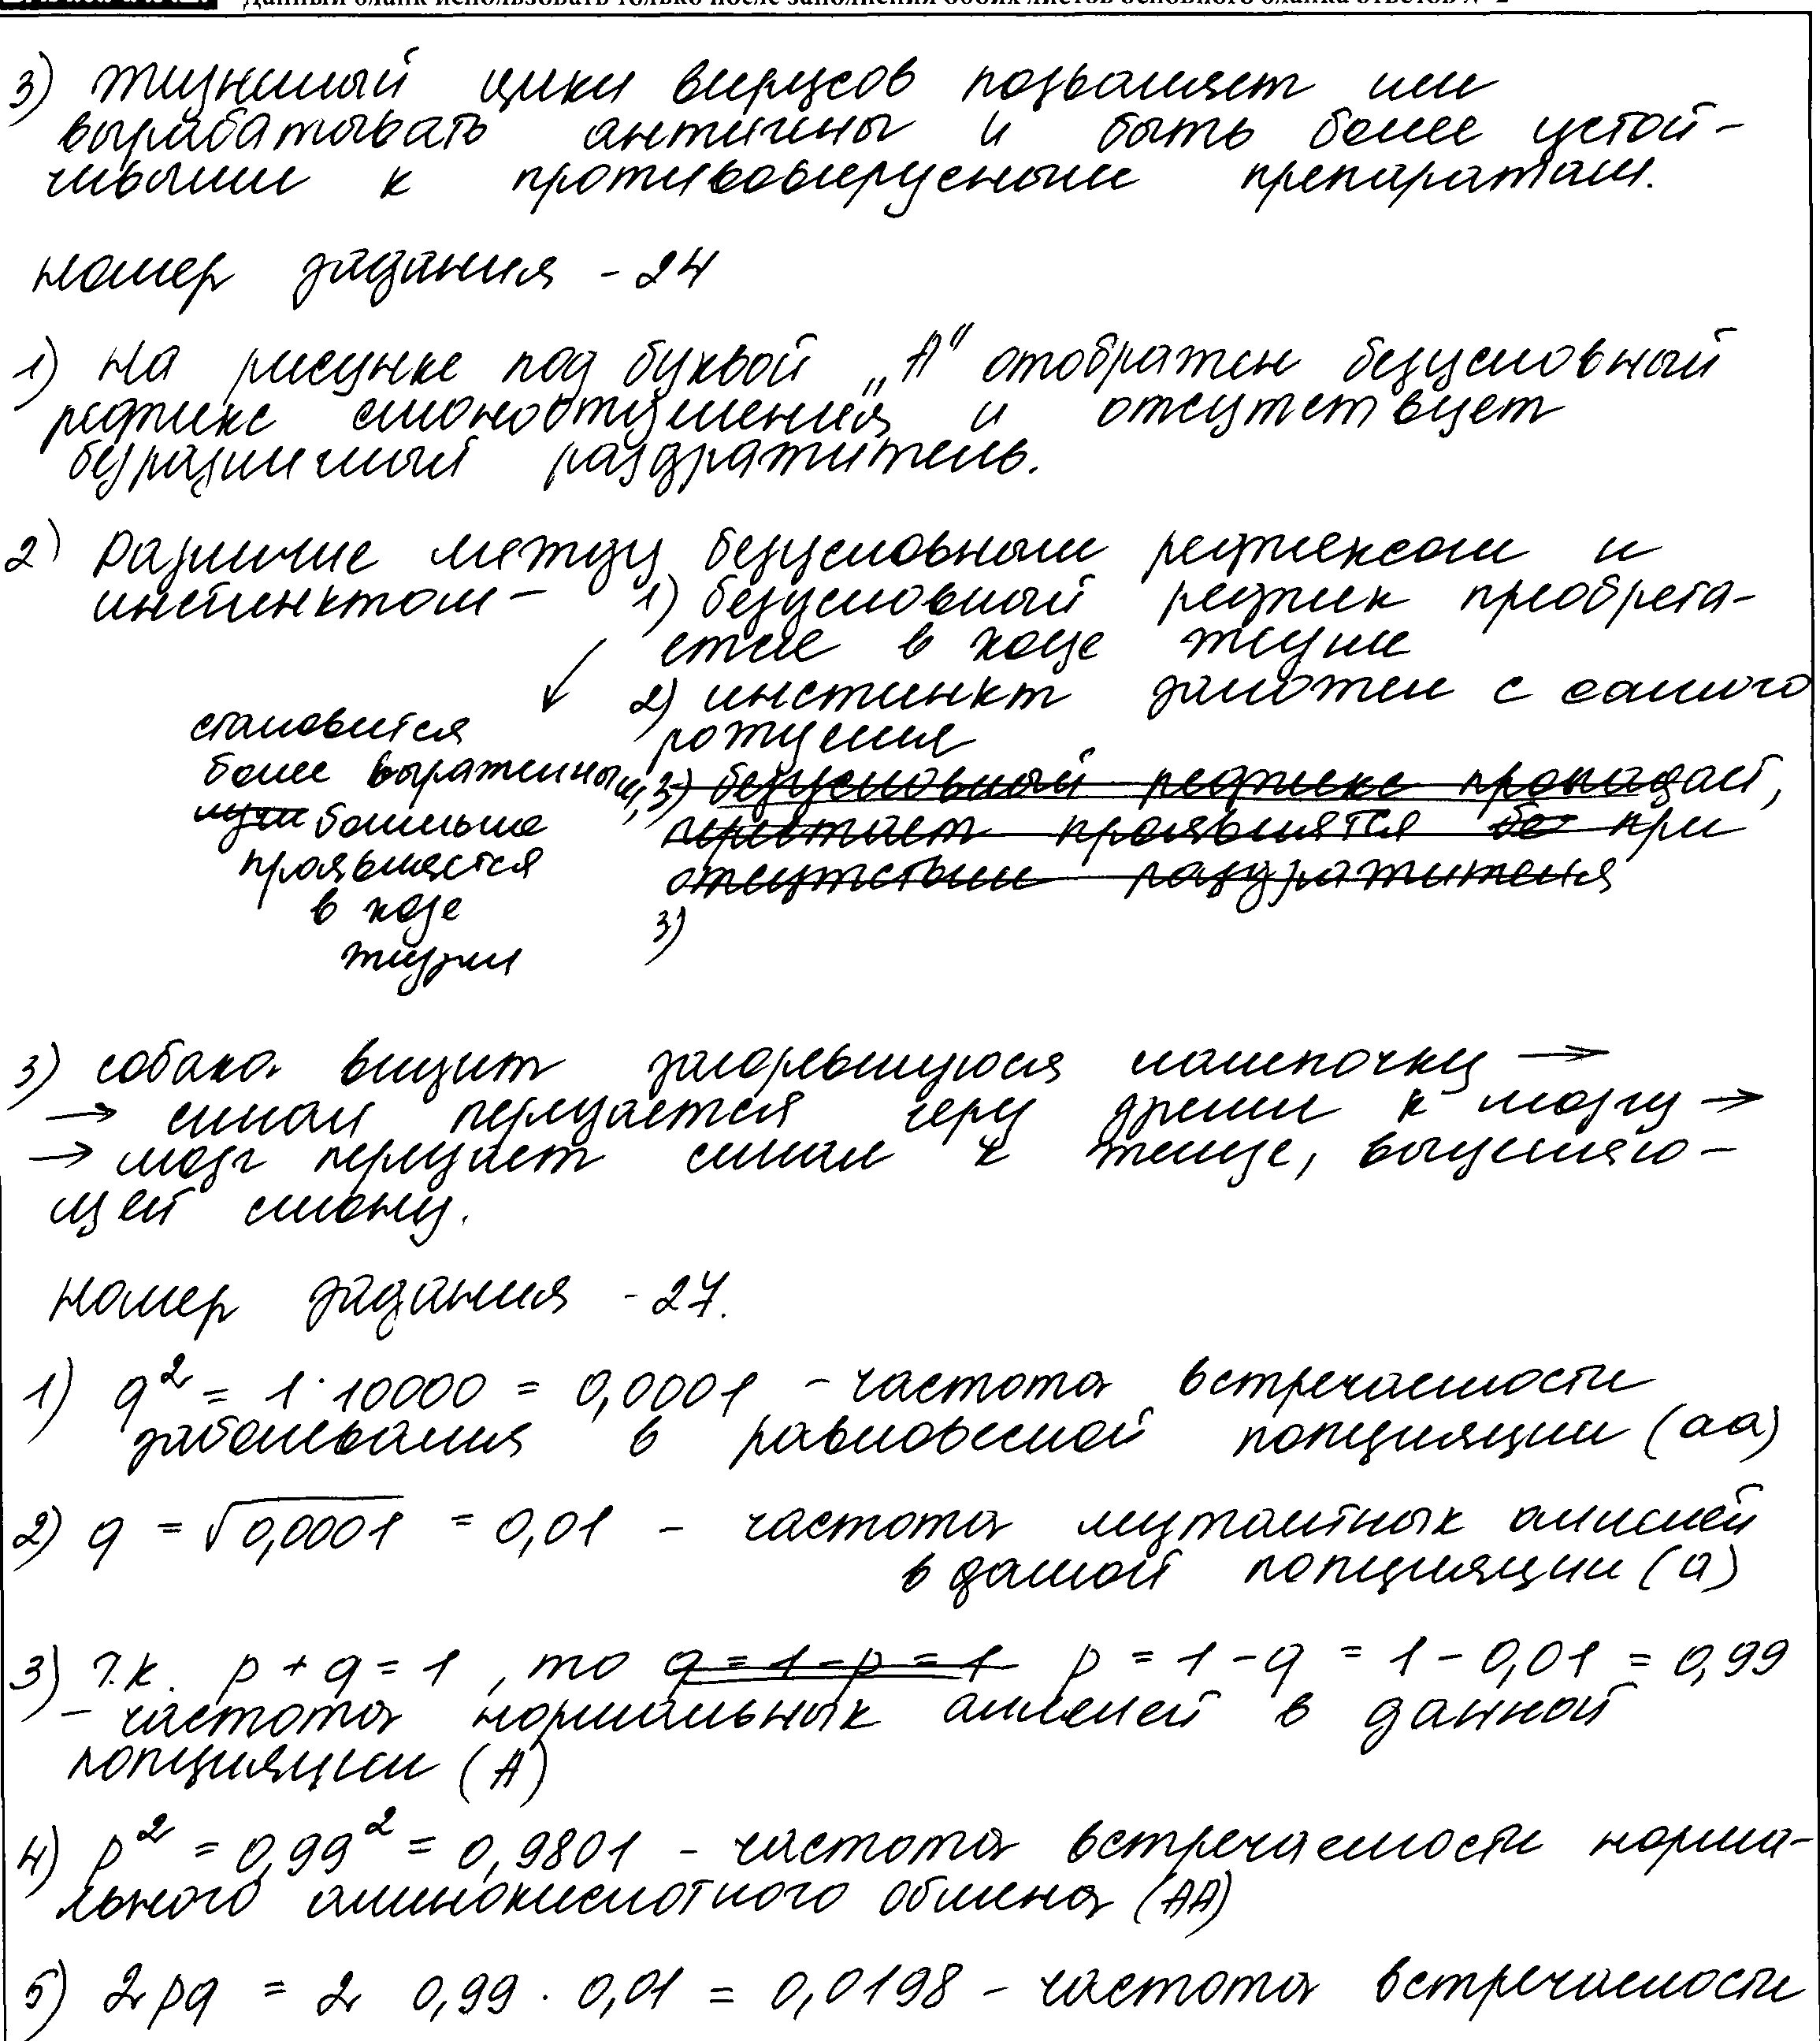 Данный бланк использовать только после заполнения обоих листов основного бланка ответов № 2
3) жизненный цикл вирусов позволяет им
вырабатывать антигены и быть более устой-
чивыми к противовирусным препаратам.
номер задания - 24
1) На рисунке под буквой „А" отображен безусловный
рефлекс слюноотделения и отсутствует
безразличный раздражитель.
2) Различие между безусловным рефлексом и
инстинктом - 1) безусловный рефлек приобрета-
ется в ходе жизни
2) инстинкт заложен с самого
рождения
становится
более выраженным,
больше
проявляется
в ходе
жизни
3) безусловный рефлекс пропадает,
перестает проявлятся при
отсутствии раздражителя
3)
3) собака видит загоревшуюся лампочку →
→ сигнал передается через зрение к мозгу →
→ мозг передает сигнал к железе, выделяю-
щей слюну.
номер задания - 27.
1) q² = 1 : 10000 = 0,0001 - частота встречаемости
заболевания в равновесной популяции (аа)
2) q = √0,0001 = 0,01 - частота мутантных аллелей
в данной популяции (а)
3) Т.к. p + q = 1, то q = 1 - p = 1 p = 1 - q = 1 - 0,01 = 0,99
- частота нормальных аллелей в данной
популяции (А)
4) p² = 0,99² = 0,9801 - частота встречаемости норма-
льного аминокислотного обмена (АА)
5) 2pq = 2 0,99 · 0,01 = 0,0198 - частота встречаемости